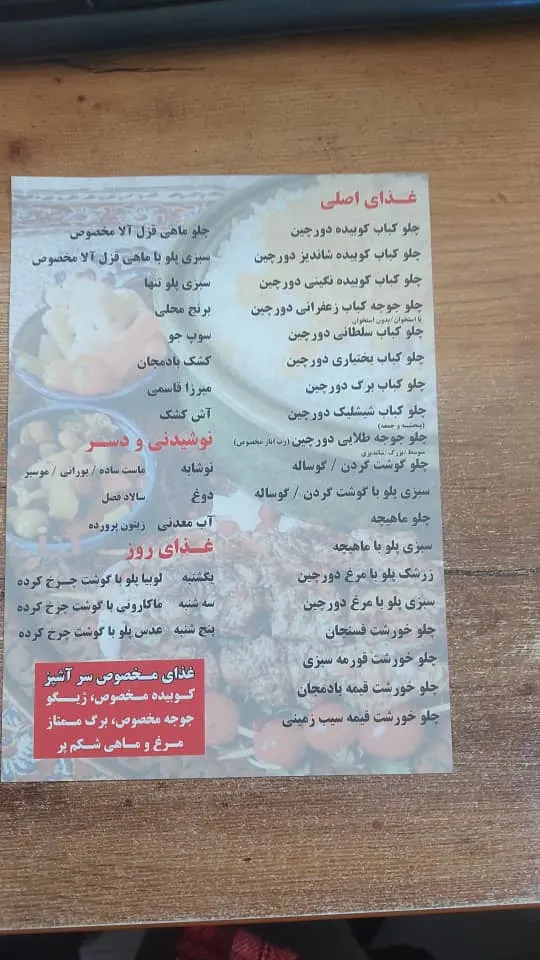 غذای اصلی
چلو کباب کوبیده دورچین
چلو کباب کوبیده شاندیز دورچین
چلو کباب کوبیده نگینی دورچین
چلو جوجه کباب زعفرانی دورچین
با استخوان /بدون استخوان
چلو کباب سلطانی دورچین
چلو کباب بختیاری دورچین
چلو کباب برگ دورچین
چلو کباب شیشلیک دورچین
(پنجشنبه و جمعه)
چلو جوجه طلایی دورچین (رب انار مخصوص)
متوسط /بزرگ /شاندیزی
چلو گوشت گردن / گوساله
سبزی پلو با گوشت گردن / گوساله
چلو ماهیچه
سبزی پلو با ماهیچه
زرشک پلو با مرغ دورچین
سبزی پلو با مرغ دورچین
چلو خورشت فسنجان
چلو خورشت قورمه سبزی
چلو خورشت قیمه بادمجان
چلو خورشت قیمه سیب زمینی
چلو ماهی قزل آلا مخصوص
سبزی پلو با ماهی قزل آلا مخصوص
سبزی پلو تنها
برنج محلی
سوپ جو
کشک بادمجان
میرزا قاسمی
آش کشک
نوشیدنی و دسر
نوشابه ماست ساده / بورانی / موسیر
دوغ سالاد فصل
آب معدنی زیتون پرورده
غذای روز
یکشنبه لوبیا پلو با گوشت چرخ کرده
سه شنبه ماکارونی با گوشت چرخ کرده
پنج شنبه عدس پلو با گوشت چرخ کرده
غذای مخصوص سر آشپز
کوبیده مخصوص، زیگو
جوجه مخصوص، برگ ممتاز
مرغ و ماهی شکم پر